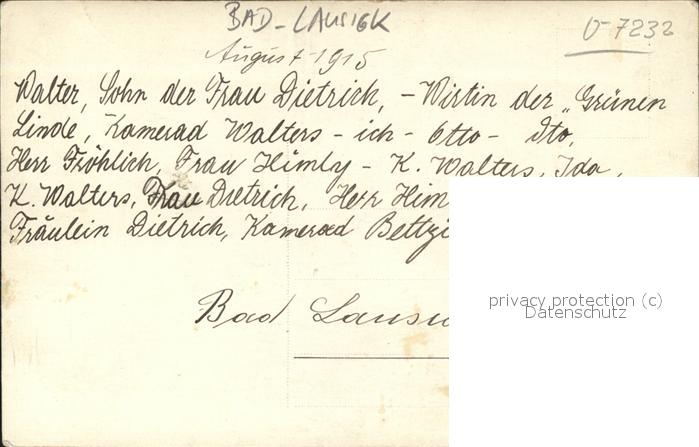 BAD-LAUSIGK
O-7232
August 1915
Walter, Sohn der Frau Dietrich, - Wirtin der „Grünen
Linde, Kamerad Walters - ich - Otto - Dto,
Herr Fröhlich, Frau Himly - K. Walters, Ida,
K. Walters, Frau Dietrich, Herr Him
Fräulein Dietrich, Kamerad
Bad
privacy protection (c)
Datenschutz